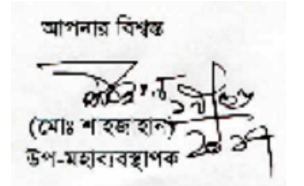 আপনার বিশ্বস্ত
(মোঃ শাহজাহান)
উপ-মহাব্যবস্থাপক